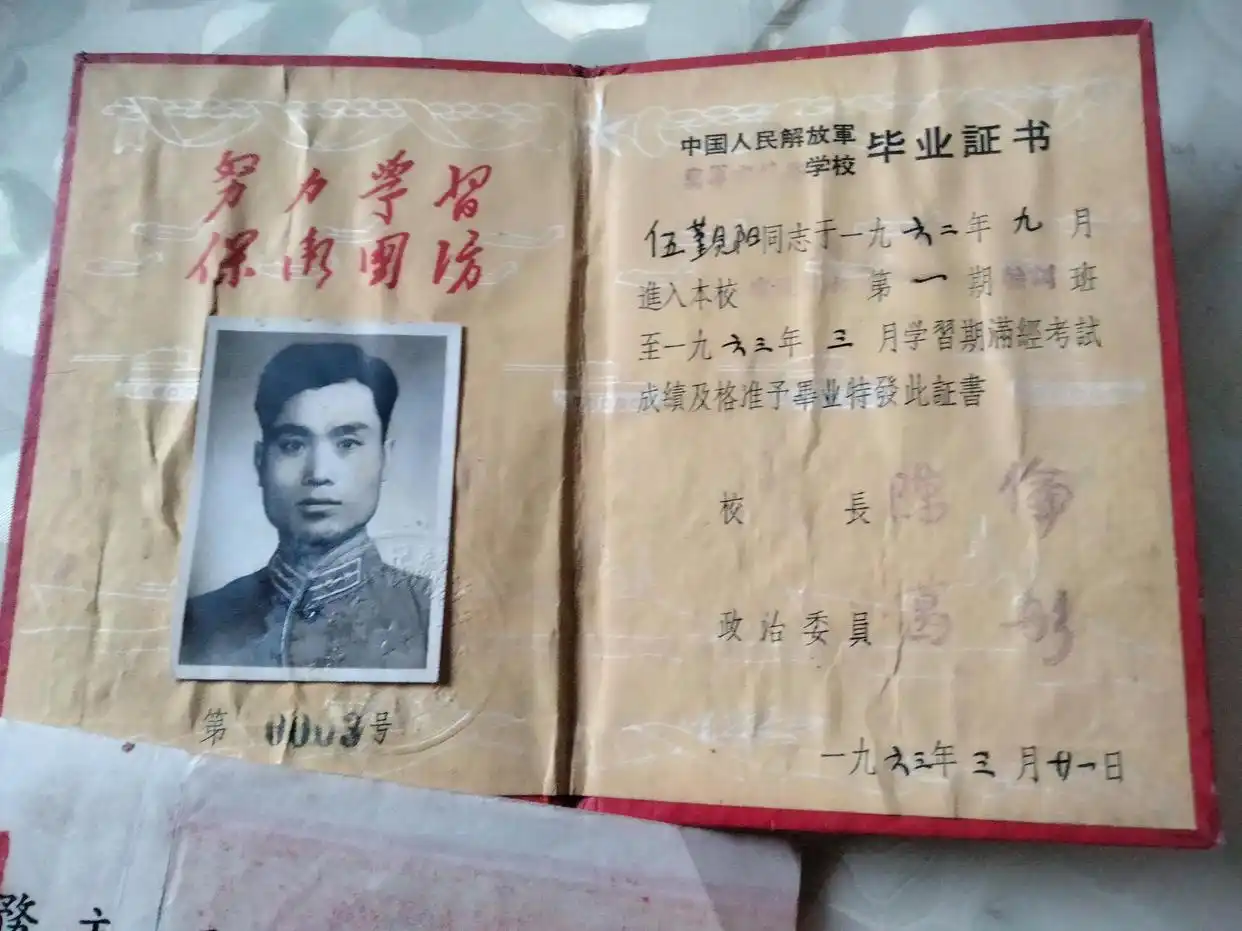 努力學習
保衛國防
第 0003 号
中国人民解放軍
学校
毕业証书
伍勤阳同志于一九六二年九月
進入本校 第一期 班
至一九六三年三月学習期滿經考試
成績及格准予畢业特發此証書
校長 陳倫
政治委員
一九六三年三月廿一日
務